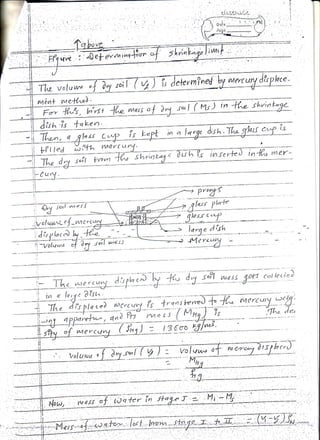 [above
Figure : Determination of Shrinkage limit
- The volume of dry soil (Vd) is determined by mercury displace-
ment method.
- For this, first the mass of dry soil (Ms) in the shrinkage
dish is taken.
- Then, a glass cup is kept in a large dish. The glass cup is
filled with mercury.
- The dry soil from the shrinkage dish is inserted in the mer-
- cury.
prongs
Dry soil mass
glass plate
glass cup
volume of mercury
displaced by the
large dish
volume of dry soil mass
Mercury
- The mercury displaced by the dry soil mass gets collected
in a large dish.
- The displaced mercury is transferred to the mercury weig-
ing apparatus, and its mass (MHg) is The den
sity of mercury (ρHg) = 13600 kg/m3.
∴ volume of dry soil (Vd) = volume of mercury displaced
= MHg
ρHg
Now, mass of water in stage I = M1 - Ms
Mass of water lost from stage I to II =